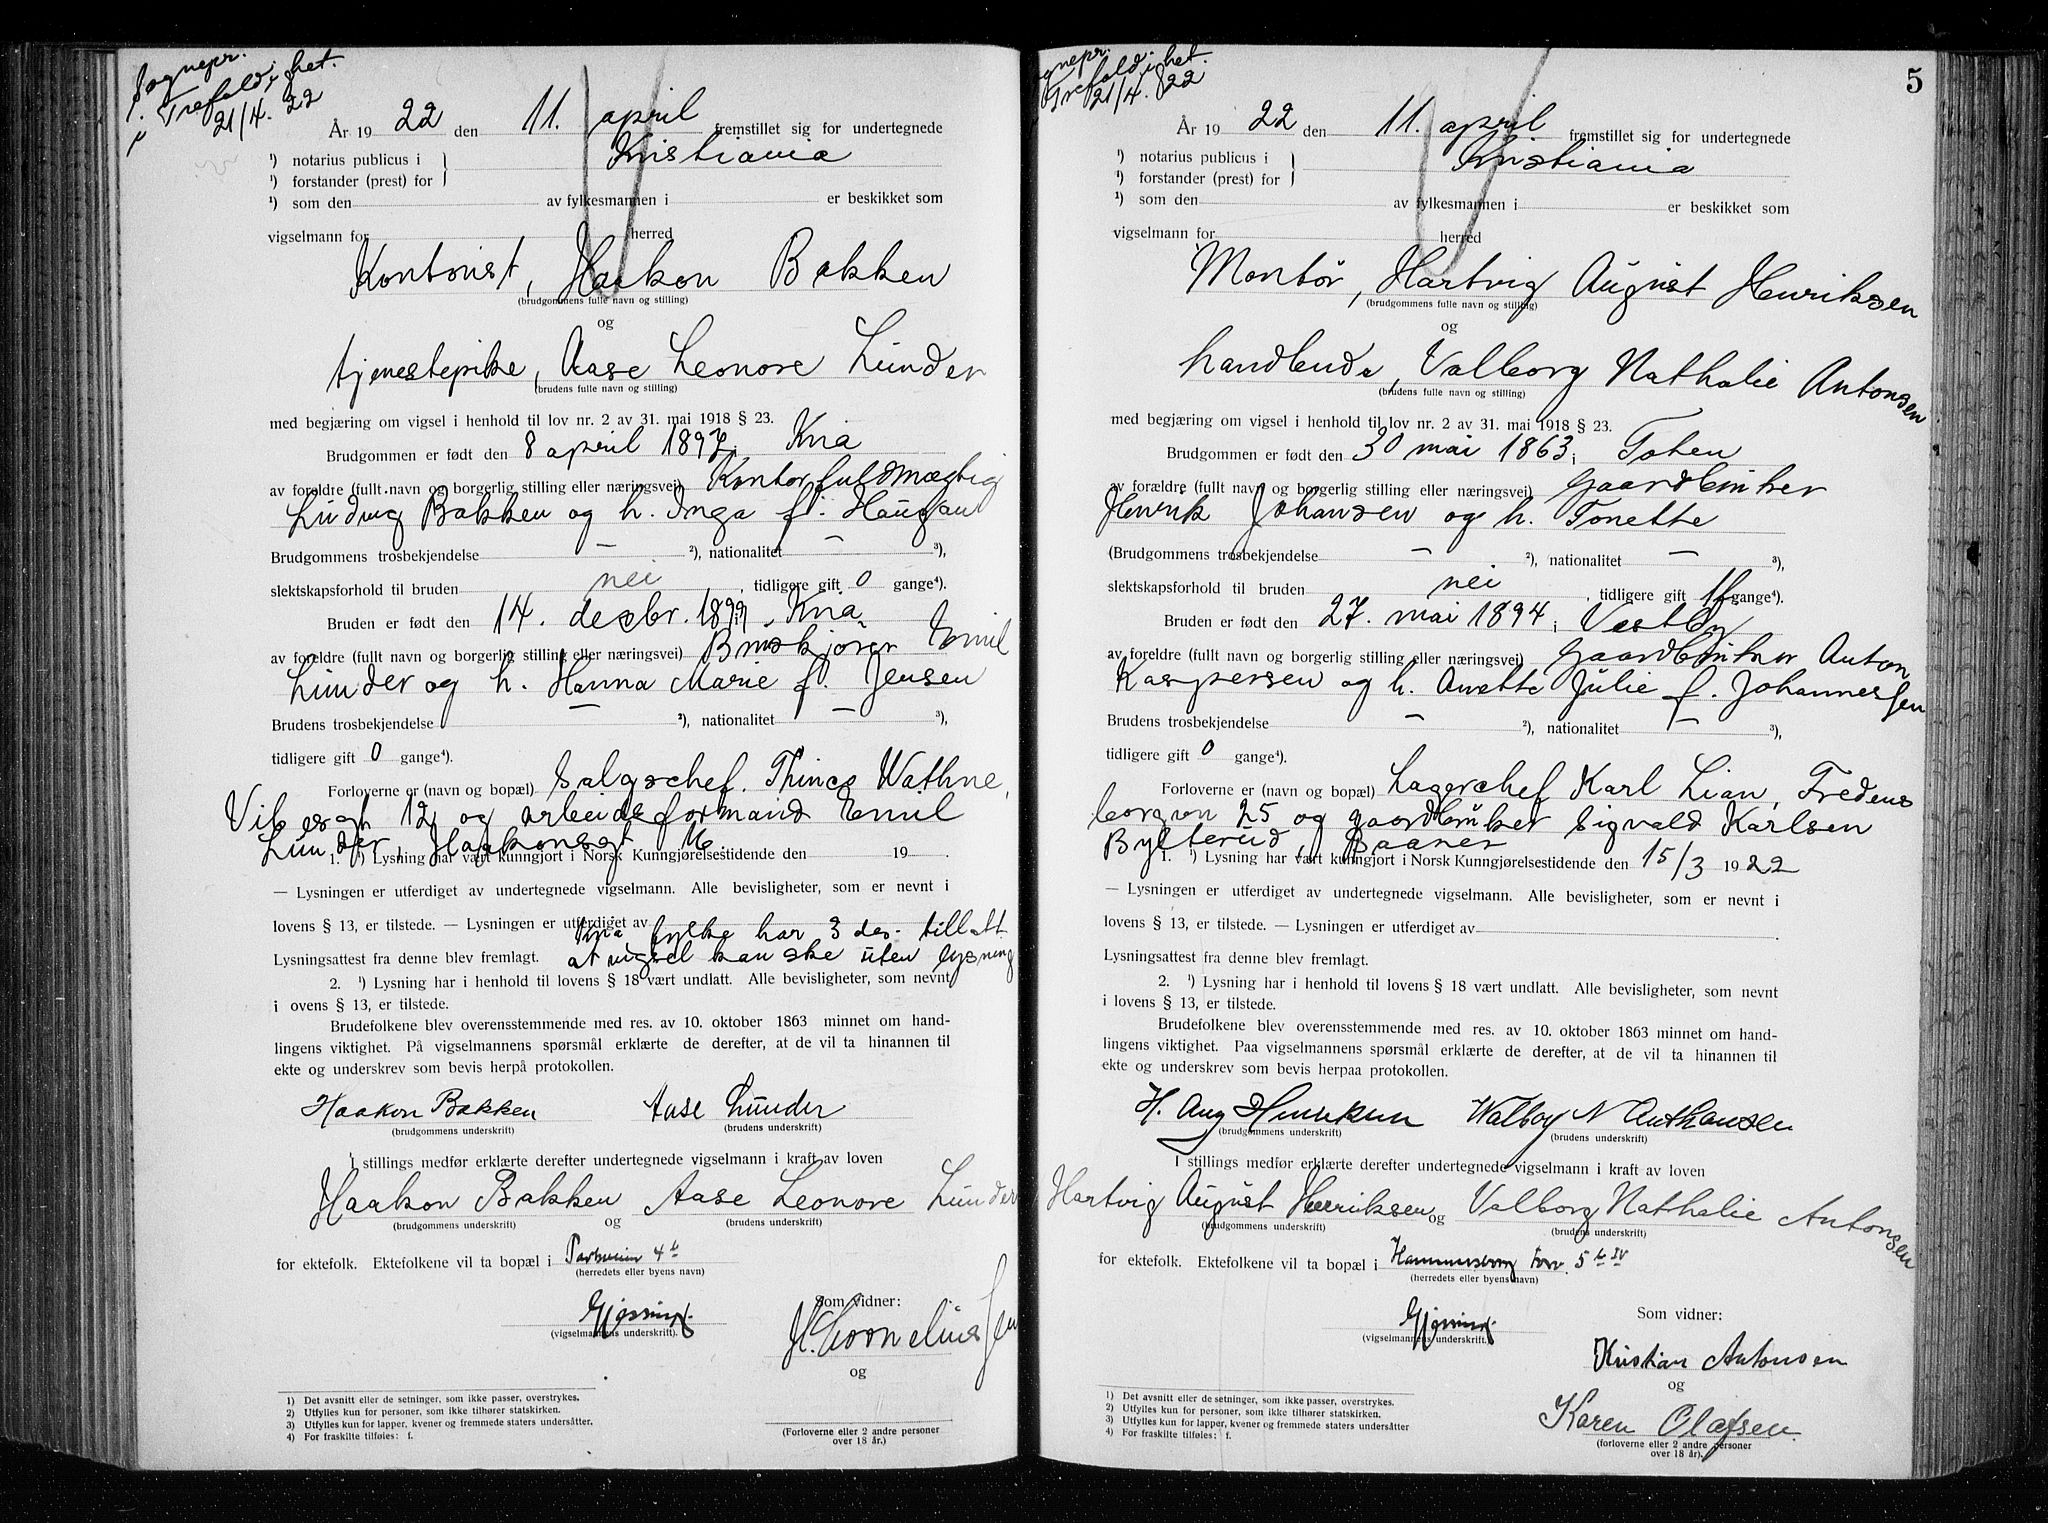 Sognepr.
i Trefoldighet.
21/4. 22
År 1922 den 11. april fremstillet sig for undertegnede
¹) notarius publicus i } Kristiania
¹) forstander (prest) for
¹) som den av fylkesmannen i er beskikket som
vigselmann for herred
Kontorist, Haakon Bakken
(brudgommens fulle navn og stilling)
og
tjenestepike, Aase Leonore Lunder
(brudens fulle navn og stilling)
med begjæring om vigsel i henhold til lov nr. 2 av 31. mai 1918 § 23.
Brudgommen er født den 8 april 1897, Kria
av foreldre (fullt navn og borgerlig stilling eller næringsvei) Kontorfuldmægtig
Ludvig Bakken og h. Inga f. Haugan
Brudgommens trosbekjendelse — ²), nationalitet — ³),
slektskapsforhold til bruden nei, tidligere gift 0 gange⁴).
Bruden er født den 14. decbr. 1899, Kria
av foreldre (fullt navn og borgerlig stilling eller næringsvei) Bruskjører Emil
Lunder og h. Hanna Marie f. Jensen
Brudens trosbekjendelse — ²), nationalitet — ³),
tidligere gift 0 gange⁴).
Forloverne er (navn og bopæl) salgschef. Thines Wathne,
Vibesgt 12 og arbeidsformand Emil
Lunder, Haakonsgt 16.
1. ¹) Lysning har vært kunngjort i Norsk Kunngjørelsestidende den 19 .
— Lysningen er utferdiget av undertegnede vigselmann. Alle bevisligheter, som er nevnt i
lovens § 13, er tilstede. — Lysningen er utferdiget av
Kria fylke har 3 ds. tillatt
Lysningsattest fra denne blev fremlagt. at vigsel kan ske uten lysning
2. ¹) Lysning har i henhold til lovens § 18 vært undlatt. Alle bevisligheter, som nevnt
i ovens § 13, er tilstede.
Brudefolkene blev overensstemmende med res. av 10. oktober 1863 minnet om hand-
lingens viktighet. På vigselmannens spørsmål erklærte de derefter, at de vil ta hinannen til
ekte og underskrev som bevis herpå protokollen.
Haakon Bakken Aase Lunder
(brudgommens underskrift) (brudens underskrift)
I stillings medfør erklærte derefter undertegnede vigselmann i kraft av loven
Haakon Bakken og Aase Leonore Lunder
(brudgommens underskrift) (brudens underskrift)
for ektefolk. Ektefolkene vil ta bopæl i 4 b
(herredets eller byens navn)
Gjessing.
(vigselmannens underskrift).
Som vidner:
H. Corneliussen
og
(Forloverne eller 2 andre personer
over 18 år.)
1) Det avsnitt eller de setninger, som ikke passer, overstrykes.
2) Utfylles kun for personer, som ikke tilhører statskirken.
3) Utfylles kun for lapper, kvener og fremmede staters undersåtter.
4) For fraskilte tilføles: f.
5
ognepr.
Trefoldighet.
21/4. 22
År 1922 den 11. april fremstillet sig for undertegnede
¹) notarius publicus i } Kristiania
¹) forstander (prest) for
¹) som den av fylkesmannen i er beskikket som
vigselmann for herred
Montør, Hartvig August Henriksen
(brudgommens fulle navn og stilling)
og
handlende, Valborg Nathalie Antonsen
(brudens fulle navn og stilling)
med begjæring om vigsel i henhold til lov nr. 2 av 31. mai 1918 § 23.
Brudgommen er født den 30 mai 1863, Toten
av forældre (fullt navn og borgerlig stilling eller næringsvei) Gaardbruker
Henrik Johansen og h. Tonette
(Brudgommens trosbekjendelse — ²), nationalitet — ³),
slektskapsforhold til bruden nei, tidligere gift 1f gange⁴).
Bruden er født den 27. mai 1894, Vestby
av foreldre (fullt navn og borgerlig stilling eller næringsvei) Gaardbruker Anton
Kaspersen og h. Anette Julie f. Johannessen
Brudens trosbekjendelse — ²), nationalitet — ³),
tidligere gift 0 gange⁴).
Forloverne er (navn og bopæl) Lagerchef Karl Lian, Fredens
borgvn 25 og gaardbruker Sigvald Karlsen
Bylterud, Baaner
1. ¹) Lysning har vært kunngjort i Norsk Kunngjørelsestidende den 15/3 1922
— Lysningen er utferdiget av undertegnede vigselmann. Alle bevisligheter, som er nevnt i
lovens § 13, er tilstede. — Lysningen er utferdiget av
Lysningsattest fra denne blev fremlagt.
2. ¹) Lysning har i henhold til lovens § 18 vært undlatt. Alle bevisligheter, som nevnt
i lovens § 13, er tilstede.
Brudefolkene blev overensstemmende med res. av 10. oktober 1863 minnet om hand-
lingens viktighet. Paa vigselmannens spørsmål erklærte de derefter, at de vil ta hinannen til
ekte og underskrev som bevis herpaa protokollen.
H. Aug Henriksen Walborg N Anthonsen
(brudgommens underskrift) (brudens underskrift)
I stillings medfør erklærte derefter undertegnede vigselmann i kraft av loven
Hartvig August Henriksen og Valborg Nathalie Antonsen
(brudgommens underskrift) (brudens underskrift)
for ektefolk. Ektefolkene vil ta bopæl i Hammersborg Torv. 5 b IV
(herredets eller byens navn)
Gjessing.
(vigselmannens underskrift.
Som vidner:
Kristian Antonsen
og
Karen Olafsen.
(forloverne eller 2 andre personer
over 18 år).
1) Det avsnitt eller de setninger, som ikke passer, overstrykes.
2) Utfylles kun for personer, som ikke tilhører statskirken.
3) Utfylles kun for lapper, kvener og fremmede staters undersåtter
4) For fraskilte tilføles: f.